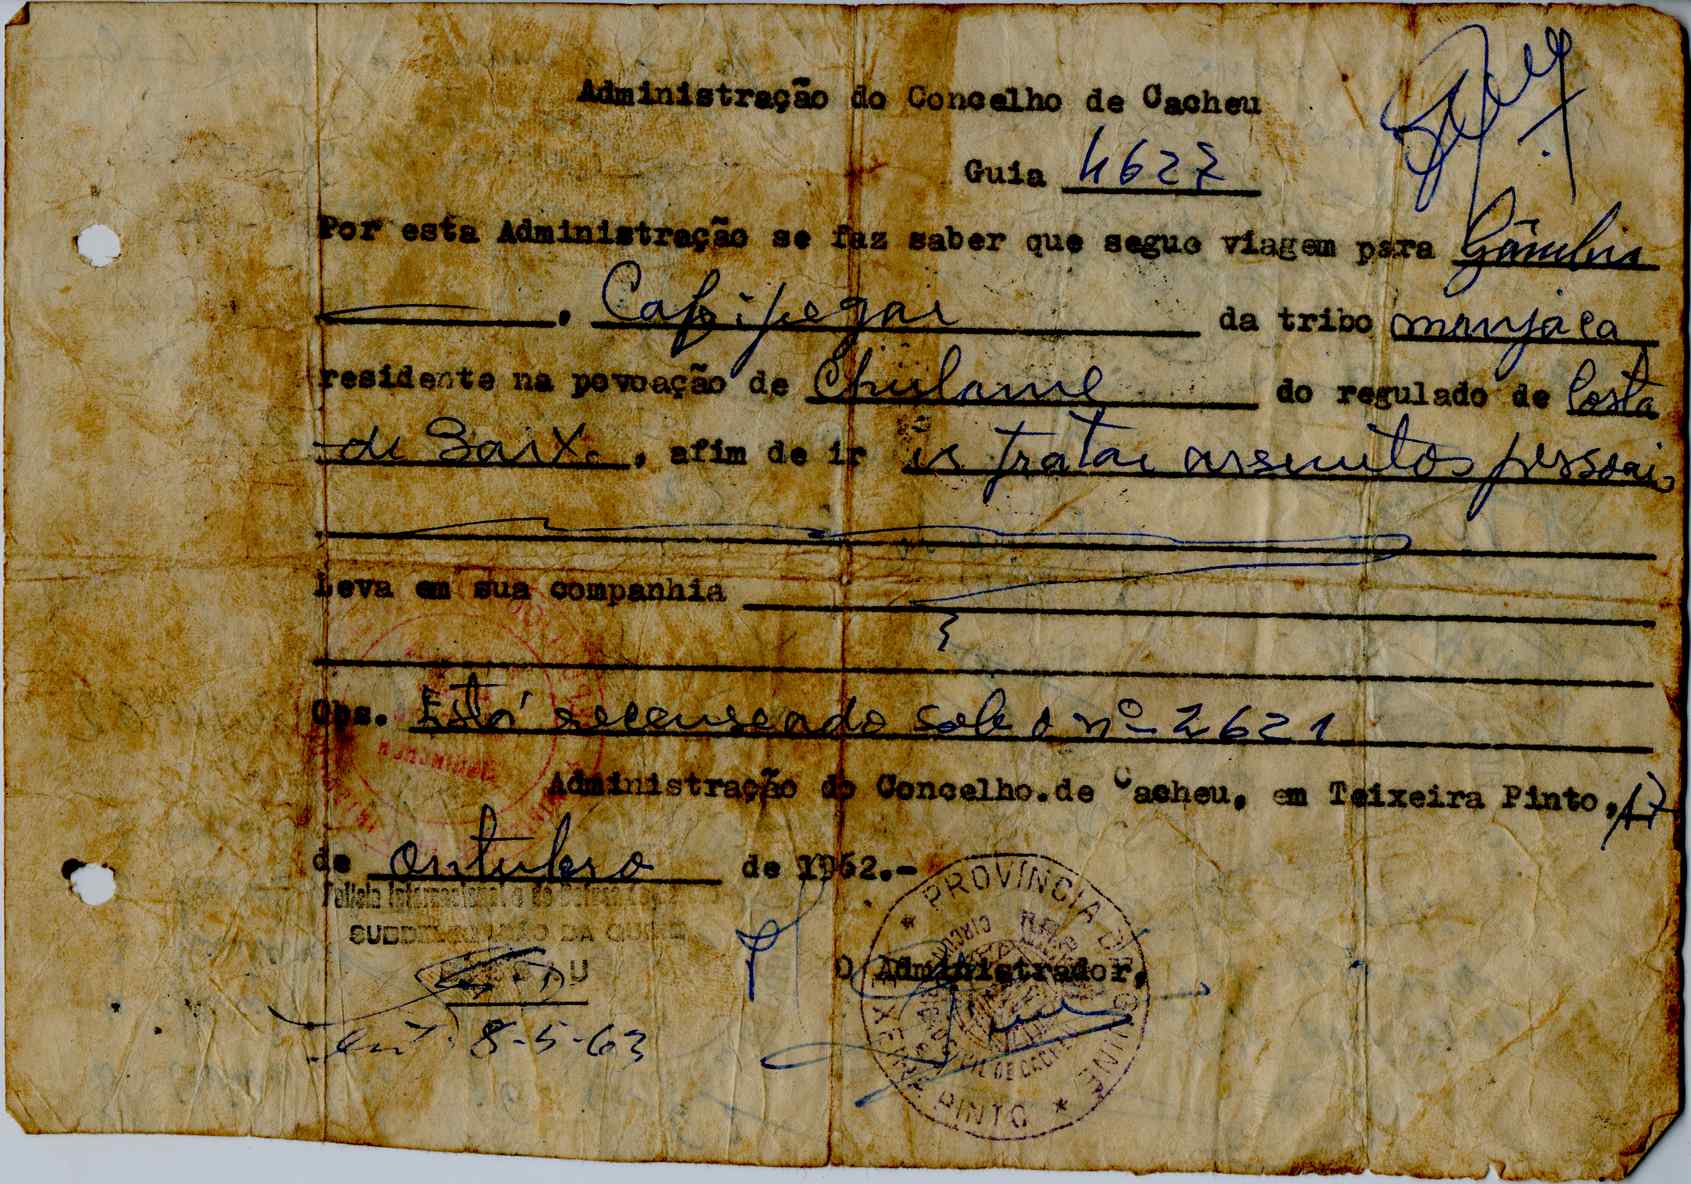 Administração do Concelho de Cacheu
Guia 4627
Por esta Administração se faz saber que segue viagem para Gâmbia
, da tribo manjaca
residente na povoação de Chulame do regulado de Costa
de Baixo, afim de ir tratar assuntos pessoais
Leva em sua companhia
Obs. Está recenseado sob o nº 2621
Administração do Concelho.de Cacheu, em Teixeira Pinto, 17
de outubro de 1962.-
Policia Internacional e de Defesa
SUBDELEGAÇÃO DA GUINÉ
BISSAU
8-5-63
O Administrador,
PROVÍNCIA DA GUINÉ
CIRCUNSCRIÇÃO CIVIL DE CACHEU
TEIXEIRA PINTO